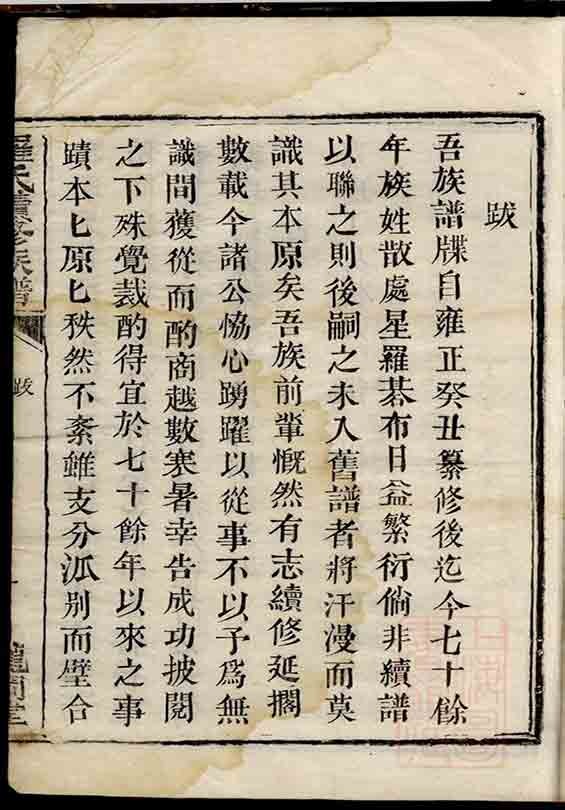 跋
吾族譜牒自雍正癸丑纂修後迄今七十餘
年族姓散處星羅碁布日益繁衍倘非續譜
以聯之則後嗣之未入舊譜者將汗漫而莫
識其本原矣吾族前輩慨然有志續修延擱
數載今諸公恊心踴躍以從事不以予爲無
識間獲從而酌商越數寒暑幸告成功披閱
之下殊覺裁酌得宜於七十餘年以來之事
蹟本匕原匕秩然不紊雖支分泒別而壁合
羅氏續修族譜
跋